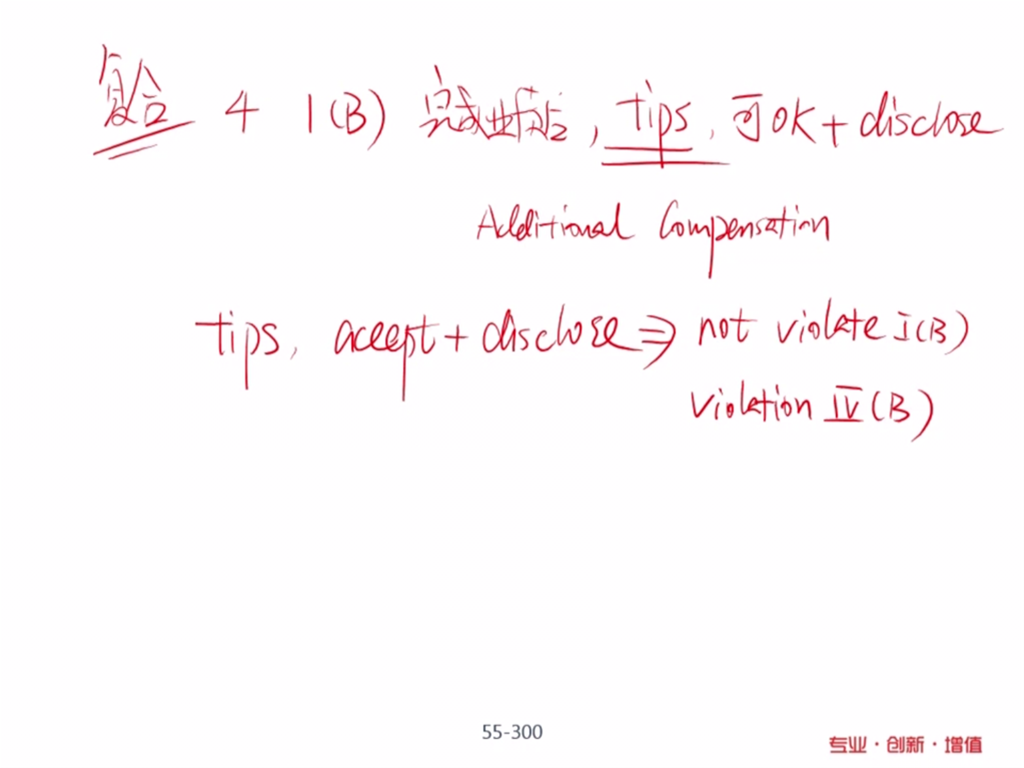 复合 4 I(B) 完成业绩后, tips, 可OK+disclose
Additional Compensation
tips, accept+disclose⇒ not violate I(B)
violation IV(B)
55-300
专业·创新·增值